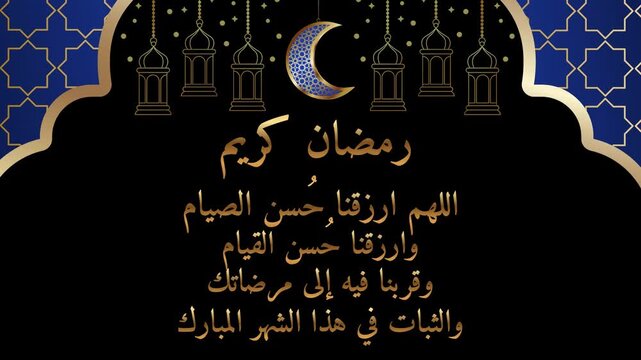 رمضان كريم
اللهم ارزقنا حُسن الصيام
وارزقنا حُسن القيام
وقربنا فيه إلى مرضاتك
والثبات في هذا الشهر المبارك